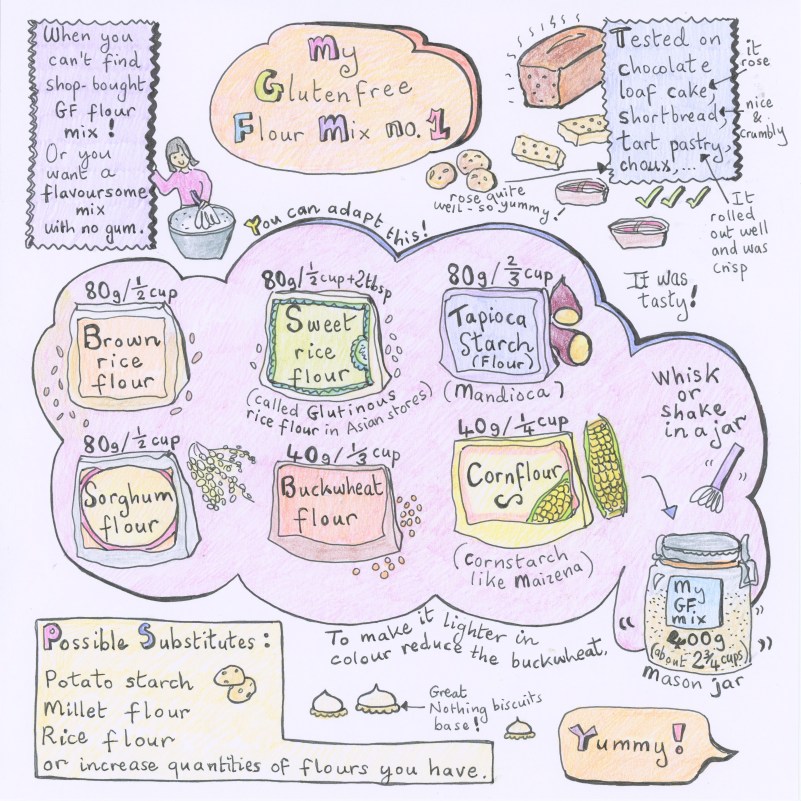 When you
can't find
shop-bought
GF flour
mix!
Or you
want a
flavoursome
mix
with no gum.
My
Glutenfree
Flour Mix no.1
Tested on
chocolate
loaf cake,
shortbread,
tart pastry,
choux,...
it
rose
nice
&
crumbly
rose quite
well - so yummy!
It
rolled
out well
and was
crisp
It was
tasty!
You can adapt this!
80g/½cup
Brown
rice
flour
80g/½cup+2tbsp
Sweet
rice
flour
(called Glutinous
rice flour in Asian stores)
80g/⅔cup
Tapioca
Starch
(Flour)
(Mandioca)
80g/½cup
Sorghum
flour
40g/⅓cup
Buckwheat
flour
40g/¼cup
Cornflour
(Cornstarch
like Maizena)
Whisk
or
shake
in a jar
My
GF
mix
400g
(about 2¾cups)
mason jar
To make it lighter in
colour reduce the buckwheat.
Possible Substitutes:
Potato starch
Millet flour
Rice flour
or increase quantities of flours you have.
Great
Nothing biscuits
base!
Yummy!